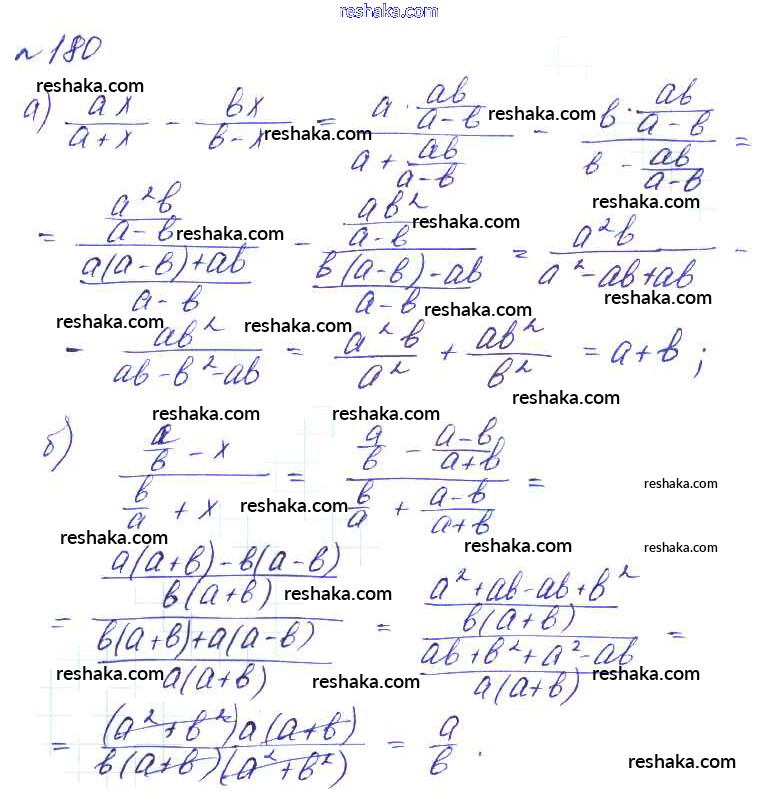 reshaka.com
№ 180
reshaka.com
а) \frac{ax}{a+x} - \frac{bx}{b-x} = \frac{a \cdot \frac{ab}{a-b}}{a + \frac{ab}{a-b}} - \frac{b \cdot \frac{ab}{a-b}}{b - \frac{ab}{a-b}} =
reshaka.com reshaka.com reshaka.com
reshaka.com
= \frac{\frac{a^2b}{a-b}}{\frac{a(a-b)+ab}{a-b}} - \frac{\frac{ab^2}{a-b}}{\frac{b(a-b)-ab}{a-b}} = \frac{a^2b}{a^2-ab+ab} -
reshaka.com reshaka.com
reshaka.com reshaka.com
reshaka.com reshaka.com reshaka.com
reshaka.com reshaka.com
- \frac{ab^2}{ab-b^2-ab} = \frac{a^2b}{a^2} + \frac{ab^2}{b^2} = a+b;
reshaka.com
reshaka.com reshaka.com
б) \frac{\frac{a}{b} - x}{\frac{b}{a} + x} = \frac{\frac{a}{b} - \frac{a-b}{a+b}}{\frac{b}{a} + \frac{a-b}{a+b}} =
reshaka.com reshaka.com
reshaka.com reshaka.com
reshaka.com reshaka.com reshaka.com
= \frac{\frac{a(a+b)-b(a-b)}{b(a+b)}}{\frac{b(a+b)+a(a-b)}{a(a+b)}} = \frac{\frac{a^2+ab-ab+b^2}{b(a+b)}}{\frac{ab+b^2+a^2-ab}{a(a+b)}} =
reshaka.com reshaka.com
reshaka.com reshaka.com reshaka.com
= \frac{(a^2+b^2)a(a+b)}{b(a+b)(a^2+b^2)} = \frac{a}{b}.
reshaka.com